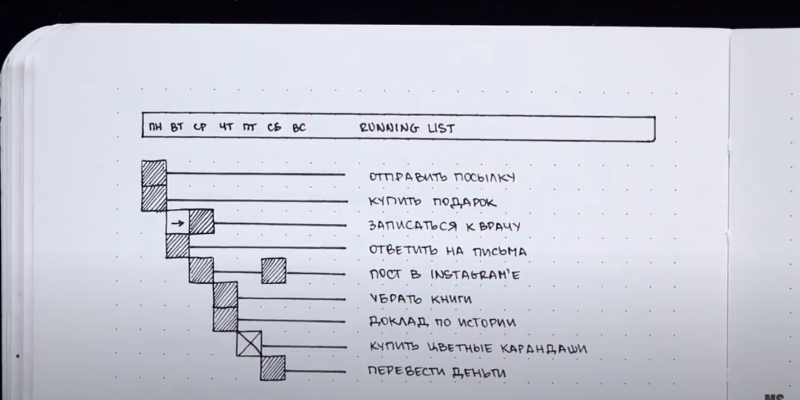 ПН ВТ СР ЧТ ПТ СБ ВС RUNNING LIST
ОТПРАВИТЬ ПОСЫЛКУ
КУПИТЬ ПОДАРОК
→ ЗАПИСАТЬСЯ К ВРАЧУ
ОТВЕТИТЬ НА ПИСЬМА
ПОСТ В INSTAGRAM'Е
УБРАТЬ КНИГИ
ДОКЛАД ПО ИСТОРИИ
КУПИТЬ ЦВЕТНЫЕ КАРАНДАШИ
ПЕРЕВЕСТИ ДЕНЬГИ